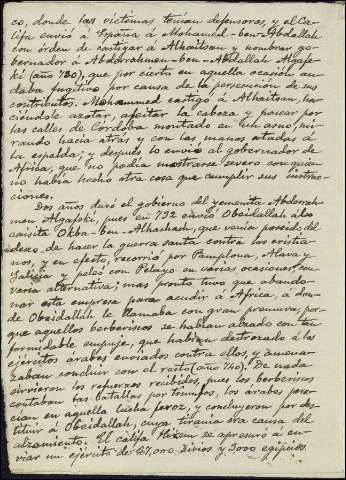 co, donde las víctimas tenían defensores, y el Ca-
lifa envió á España á Mohamed-ben-Abdallah
con órden de castigar á Alhaitsam y nombrar go-
bernador á Abderahmen-ben-Abdallah Algafe-
ki (año 730), que por cierto en aquella ocasión an-
daba fugitivo por causa de la persecusión de sus
contributos. Mohammed castigó á Alhaitsam, ha-
ciéndole azotar, afeitar la cabeza y pasear por
las calles de Córdoba montado en un asno, mi-
rando hacia atrás y con las manos atadas á
la espalda; y después lo envió al gobernador de
Africa, que no podía mostrarse severo con quien
no había hecho otra cosa que cumplir sus instruc-
ciones.
Dos años duró el gobierno del yemenita Abderrah-
men Algafeki, pues en 732 envió Obeidallah á los
caisita Okba-ben-Alhachach, que venía poseido del
deseo de hacer la guerra santa contra los cristia-
nos, y en efecto, recorrió por Pamplona, Alava y
Galicia y peleó con Pelayo en varias ocasiones, con
varia alternativa; mas pronto tuvo que abando-
nar esta empresa para acudir á Africa, á don-
de Obeidallah le llamaba con gran premura, por-
que aquellos berberiscos se habían alzado con tan
formidable empuje, que habían destrozado á los
ejércitos árabes enviados contra ellos, y amena-
zaban concluir con el resto (año 740). De nada
sirvieron los refuerzos recibidos, pues los berberiscos
contaban las batallas por triunfos, los árabes pere-
cían en aquella lucha feroz, y concluyeron por des-
tituir á Obeidallah, cuya tiranía era causa del
alzamiento. El califa Hixem se apresuró á en-
viar un ejército de 27,000 sirios y 3000 egipcios.